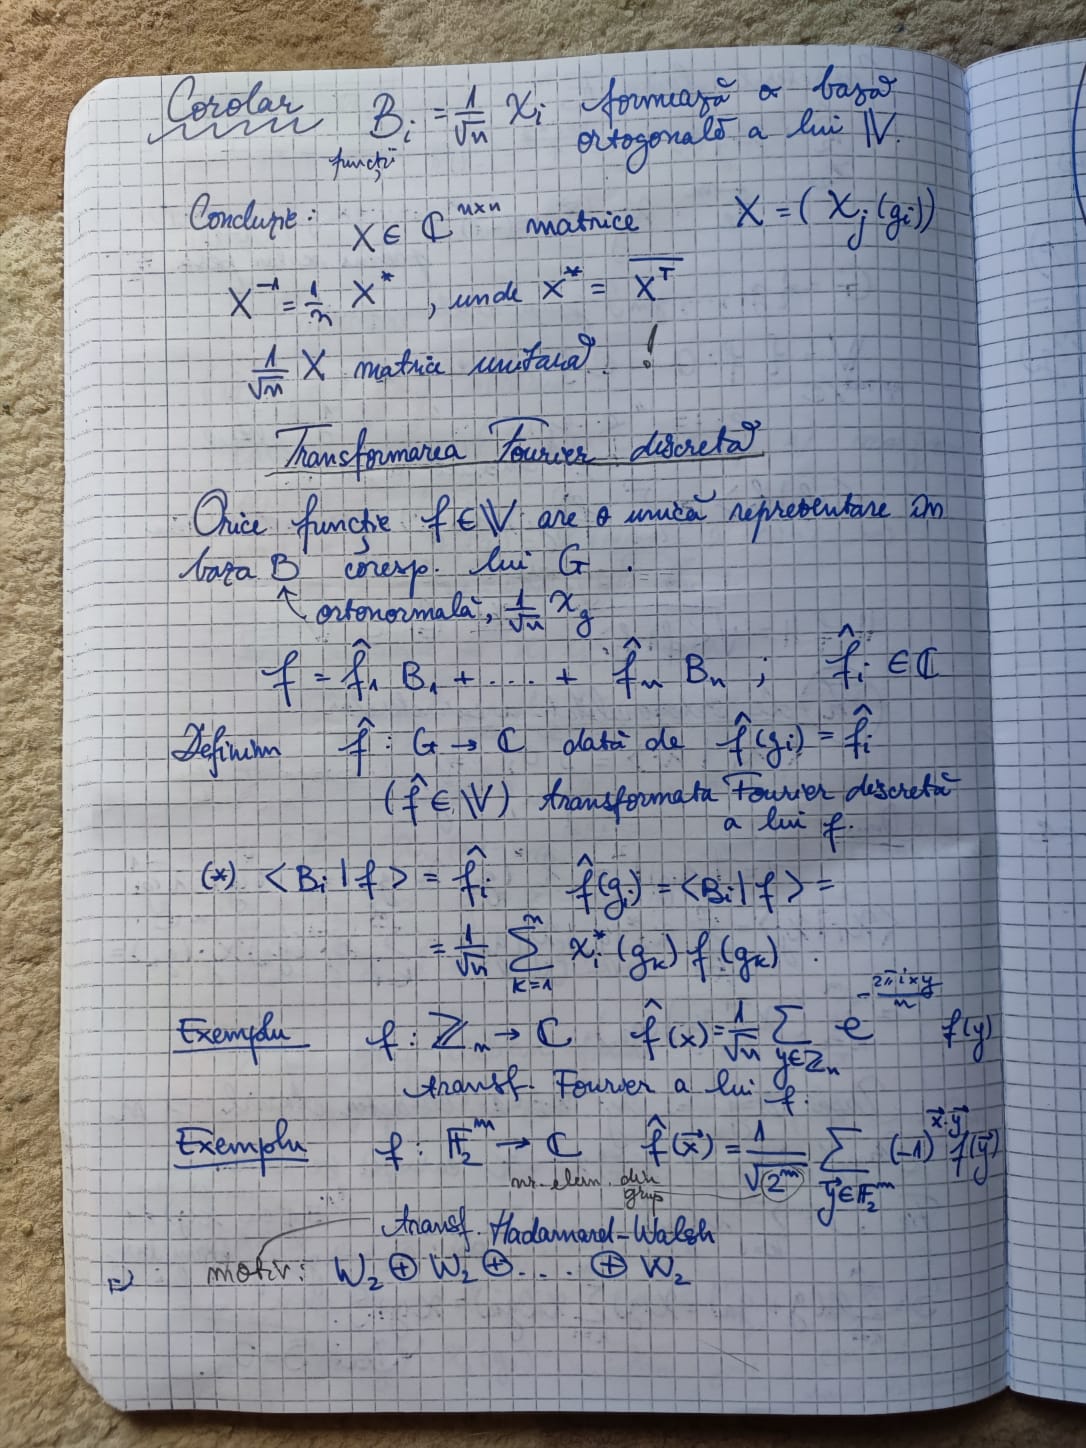 Corolar B_i = 1/√n χ_i formează o bază
funcții ortogonală a lui V.
Concluzie: X ∈ ℂ^{n×n} matrice X = (χ_j(g_i))
X^{-1} = 1/n X^*, unde X^* = \overline{X^T}
1/√n X matrice unitară. !
Transformarea Fourier discretă
Orice funcție f ∈ V are o unică reprezentare în
baza B coresp. lui G.
↑ ortonormală, 1/√n χ_g
f = f̂_1 B_1 + ... + f̂_n B_n ; f̂_i ∈ ℂ
Definim f̂ : G → ℂ dată de f̂(g_i) = f̂_i
(f̂ ∈ V) transformata Fourier discretă
a lui f.
(*) <B_i | f> = f̂_i f̂(g_i) = <B_i | f> =
= 1/√n ∑_{k=1}^{n} χ_i^*(g_k) f(g_k)
Exemplu f : ℤ_n → ℂ f̂(x) = 1/√n ∑_{y∈ℤ_n} e^{-2πixy/n} f(y)
transf. Fourier a lui f.
Exemplu f : 𝔽_2^m → ℂ f̂(x⃗) = 1/√(2^m) ∑_{y⃗∈𝔽_2^m} (-1)^{x⃗·y⃗} f(y⃗)
nr. elem. din
grup
transf. Hadamard-Walsh
=> motiv: W_2 ⊕ W_2 ⊕ ... ⊕ W_2